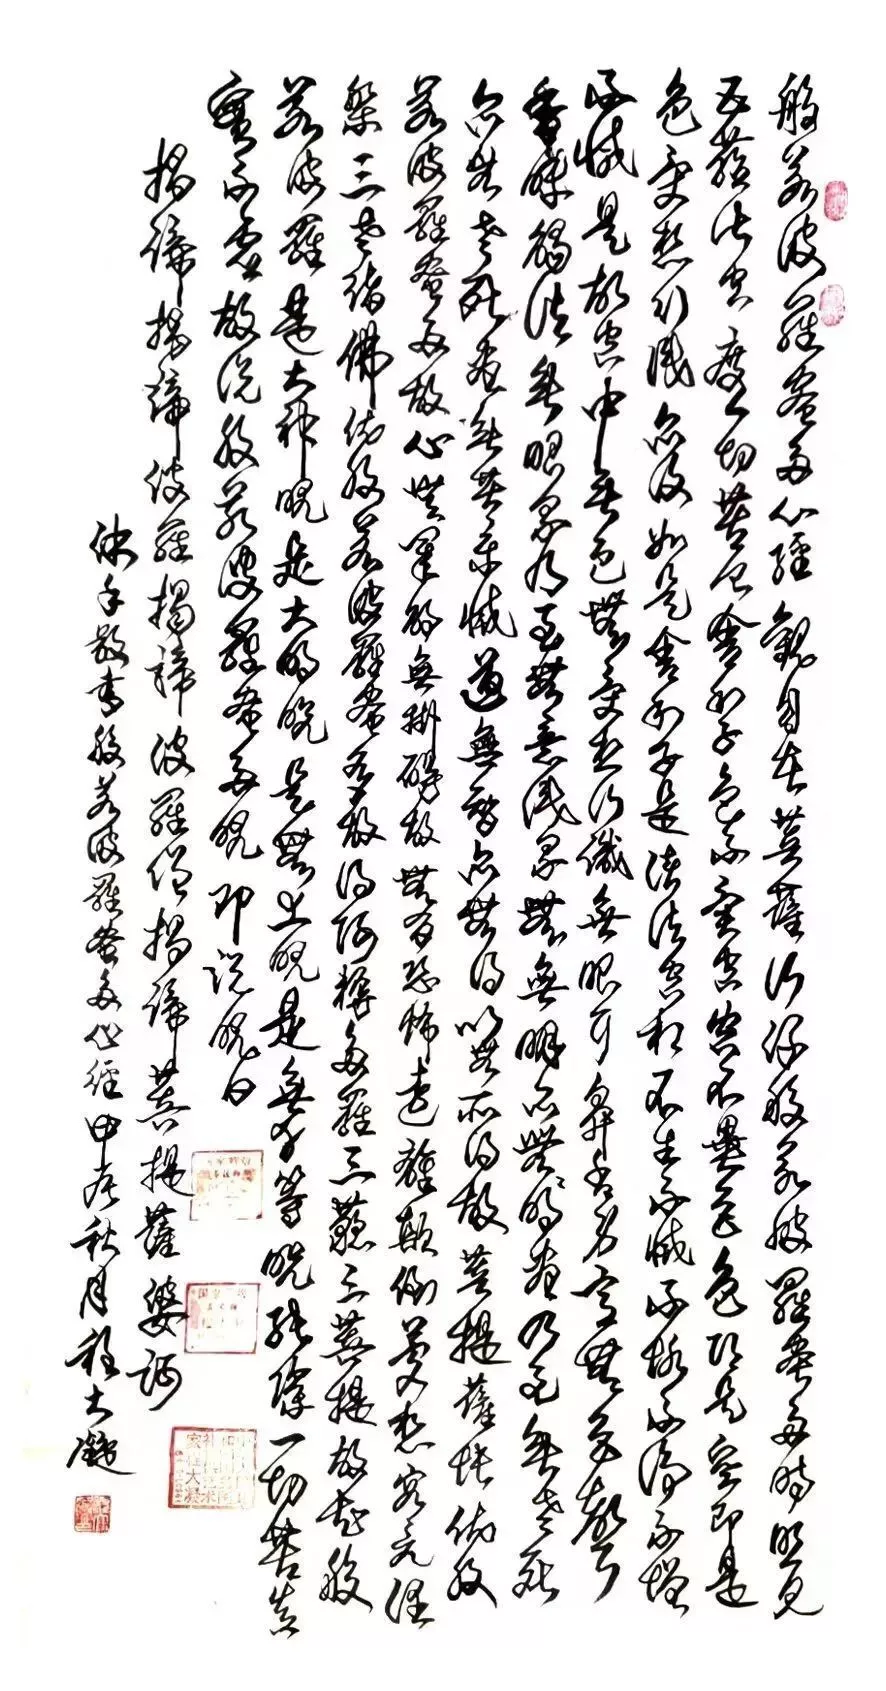 般若波羅蜜多心經觀自在菩薩行深般若波羅蜜多時照見
五蘊皆空度一切苦厄舍利子色不異空空不異色色即是空即是
色受想行識亦復如是舍利子是諸法空相不生不滅不垢不淨不增
不減是故空中無色無受想行識無眼耳鼻舌身意無色聲
香味觸法無眼界乃至無意識界無無明亦無明盡乃至無老死
亦無老死盡無苦集滅道無智亦無得以無所得故菩提薩埵依般
若波羅蜜多故心無罣礙無掛礙故無有恐怖遠離顛倒夢想究竟涅
槃三世諸佛依般若波羅蜜多故得阿耨多羅三藐三菩提故知般
若波羅是大神呪是大明呪是無上呪是無等等呪能除一切苦真
實不虛故說般若波羅蜜多呪即說呪曰
揭諦揭諦波羅揭諦波羅僧揭諦菩提薩婆訶
沐手敬書般若波羅蜜多心經甲辰秋月程大凝